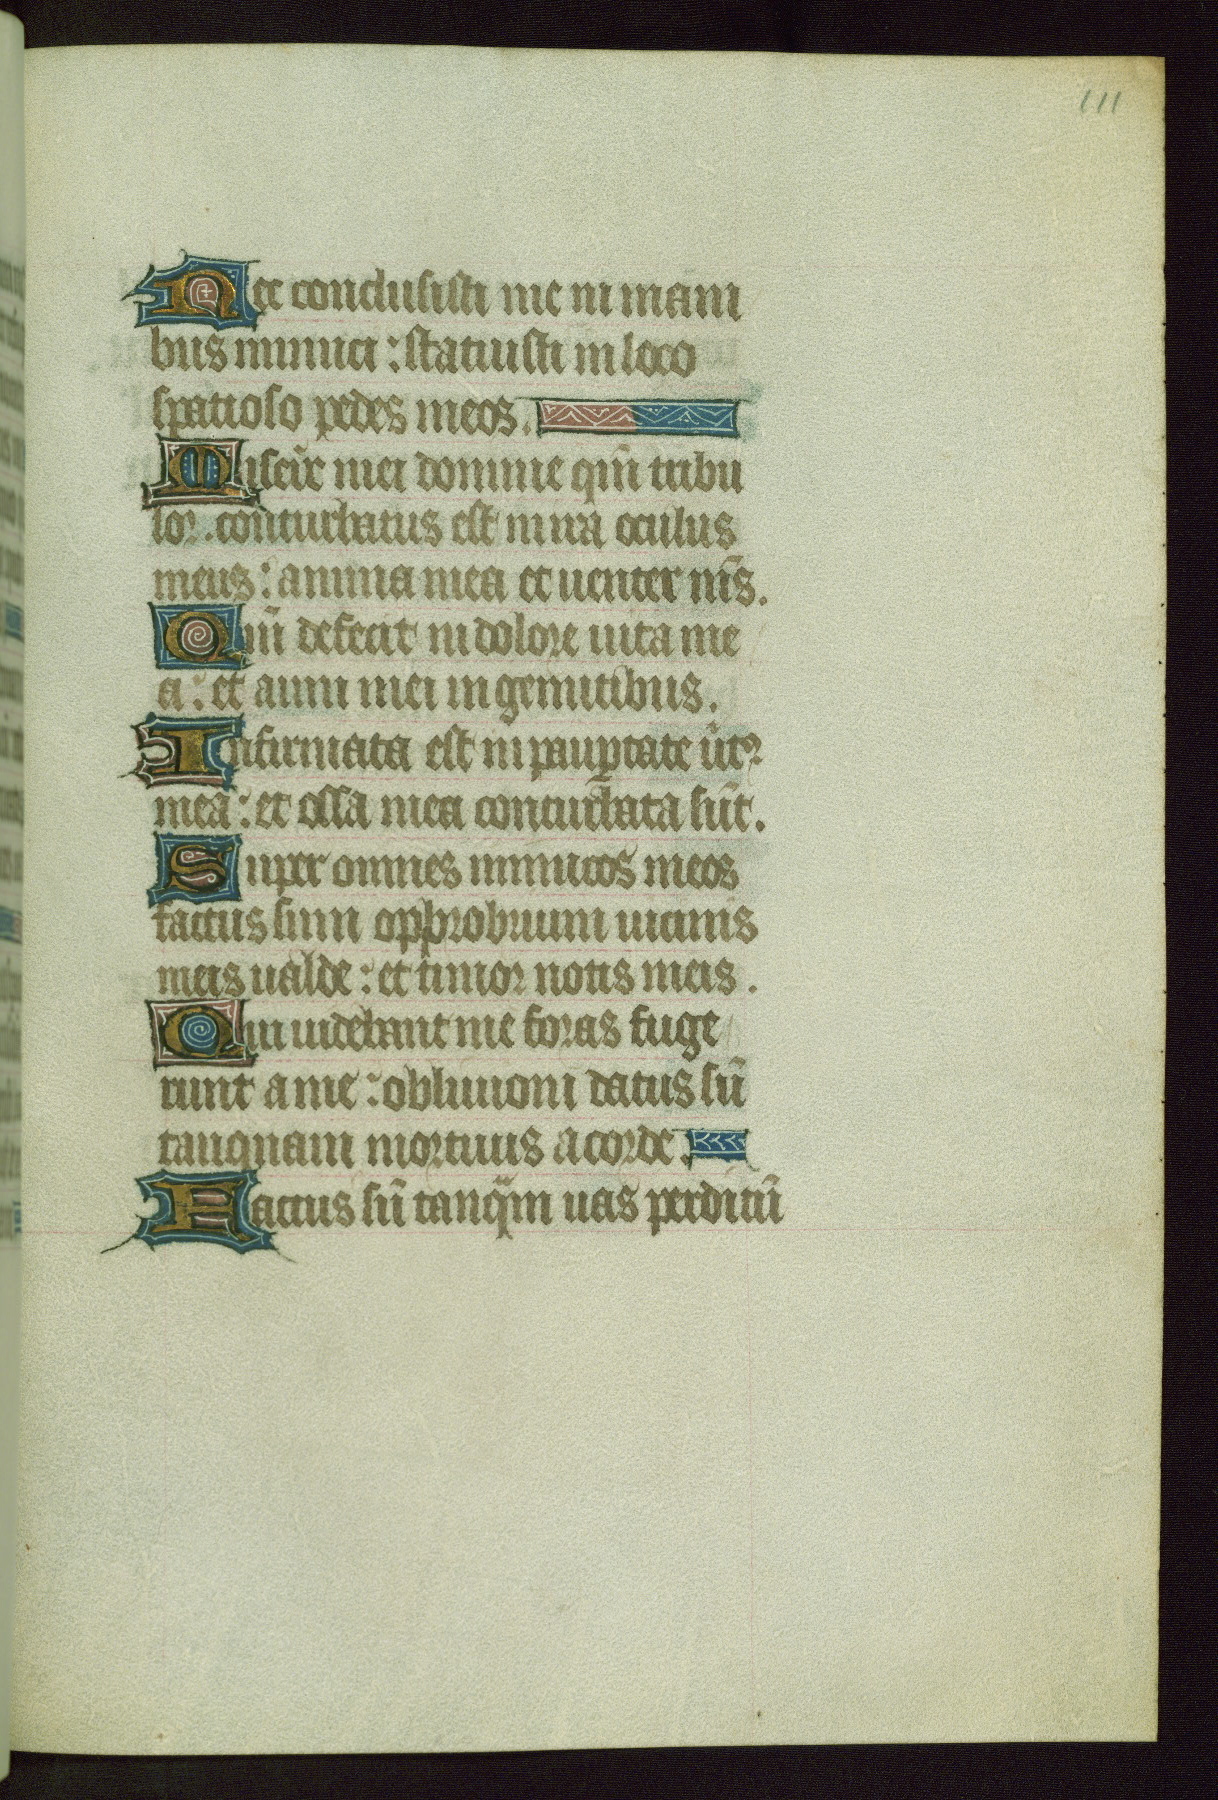 111
Nec conclusisti me in mani
bus inimici : statuisti in loco
spatioso pedes meos.
Miser̄e mei domine qm̄ tribu
lor. conturbatus est in ira oculus
meus : anima mea et uenter ms̄.
Qm̄ defecit in dolore uita me
a : et anni mei in gemitibus.
Infirmata est in paup̱tate uir̄ꝰ
mea : et ossa mea conturbata sūt.
Super omnes inimicos meos
factus sum opprobrium uicinis
meis ualde : et timor notis meis.
Qui uidebant me foras fuge
runt a me : obliuioni datus sū
tanquam mortuus a corde.
Factus sū tanq̄m uas perditū